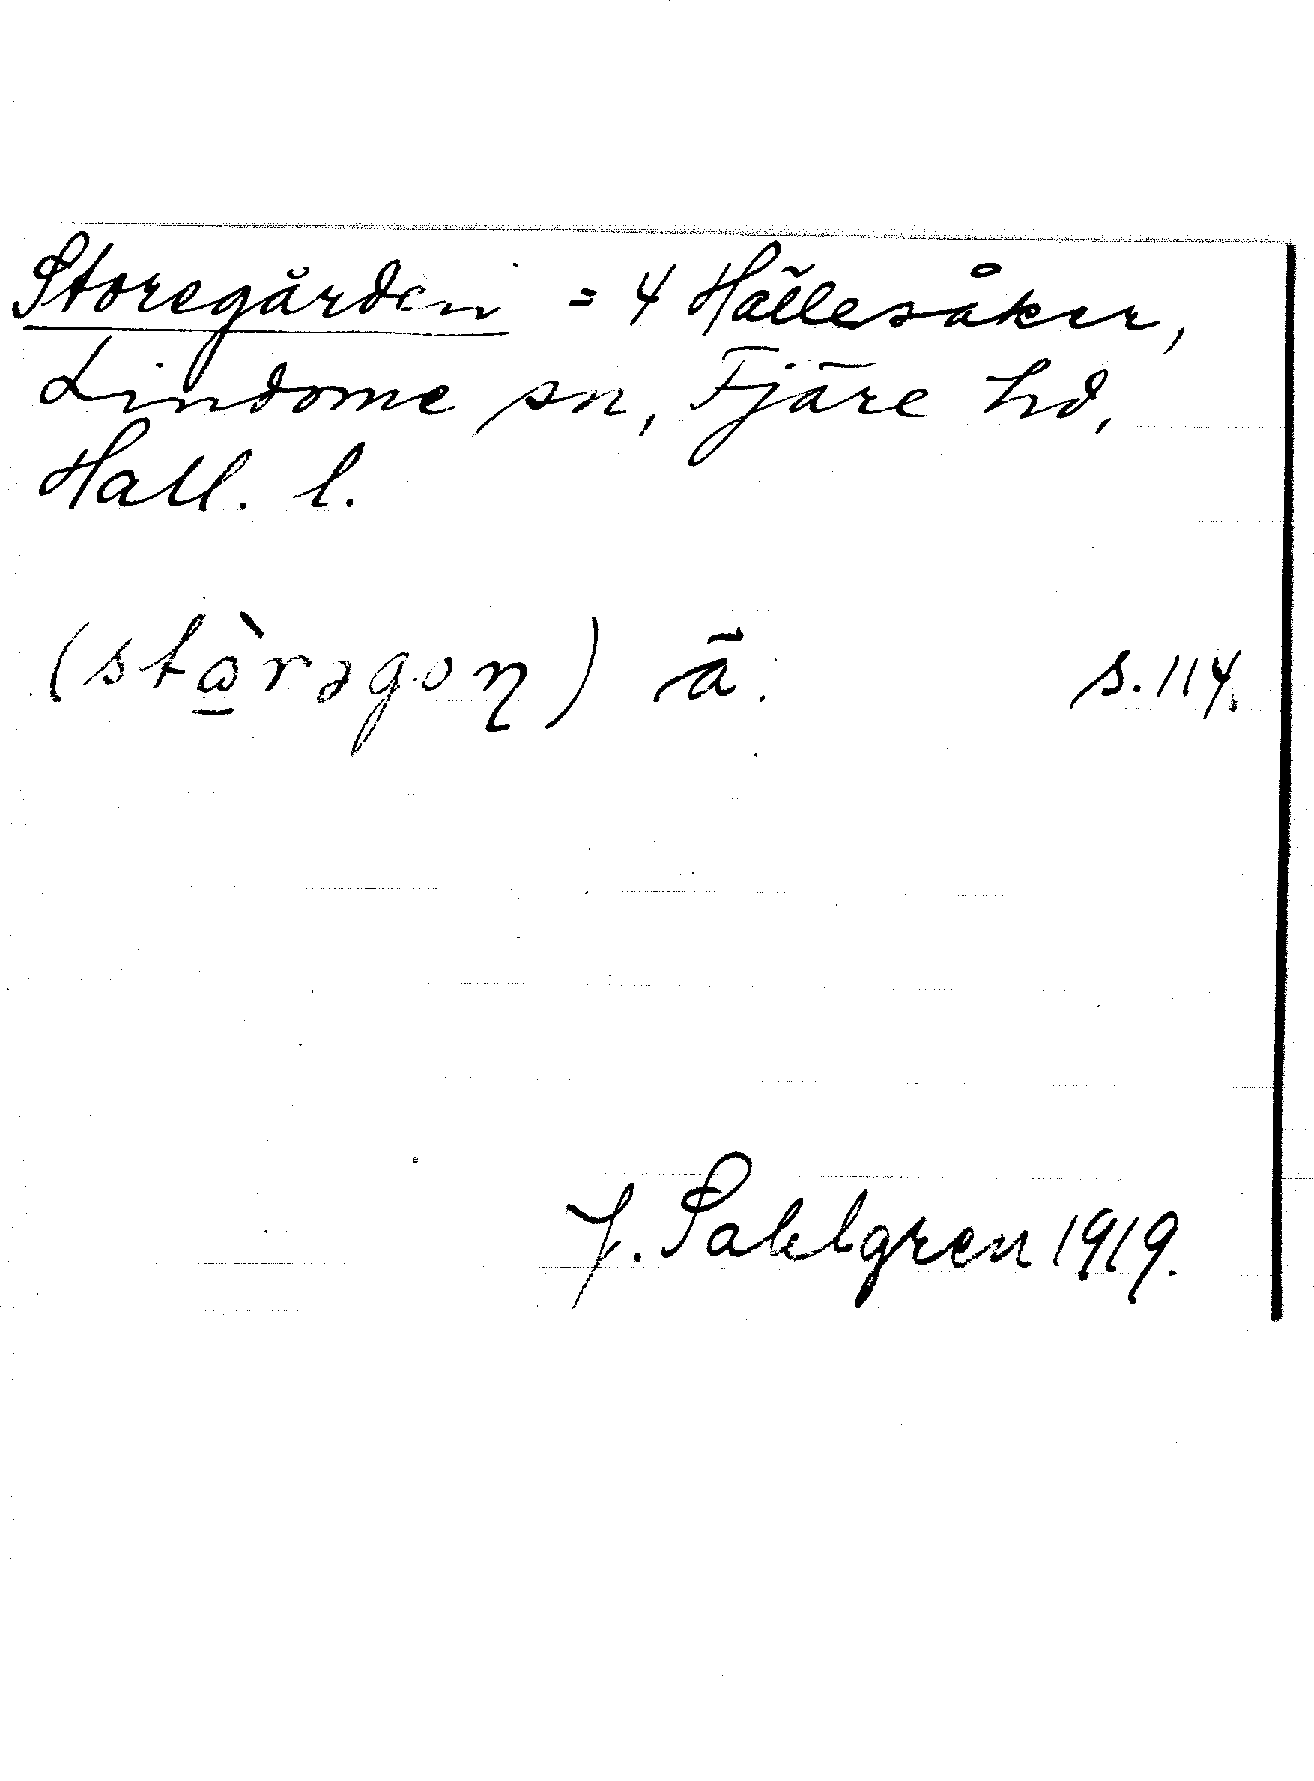 Storegården = 4 Hällesåker,
Lindome sn, Fjäre hd,
Hall. l.
(stὼ̲rəgoɳ) ā. s. 114.
J. Sahlgren 1919.